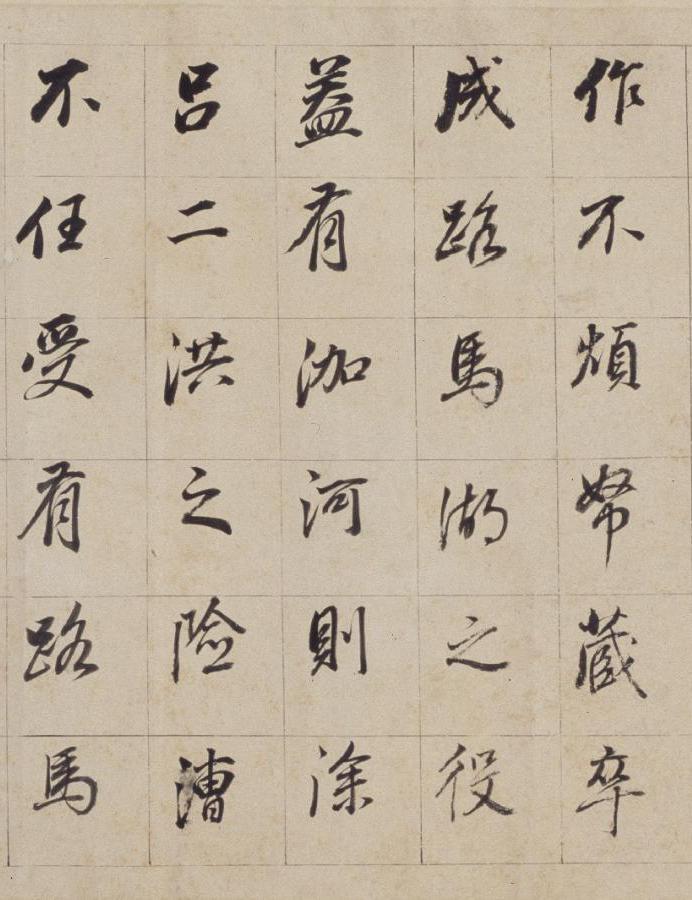 作不煩帑藏卒
成路馬湖之役
葢有泇河則涂
呂二洪之險漕
不任受有路馬